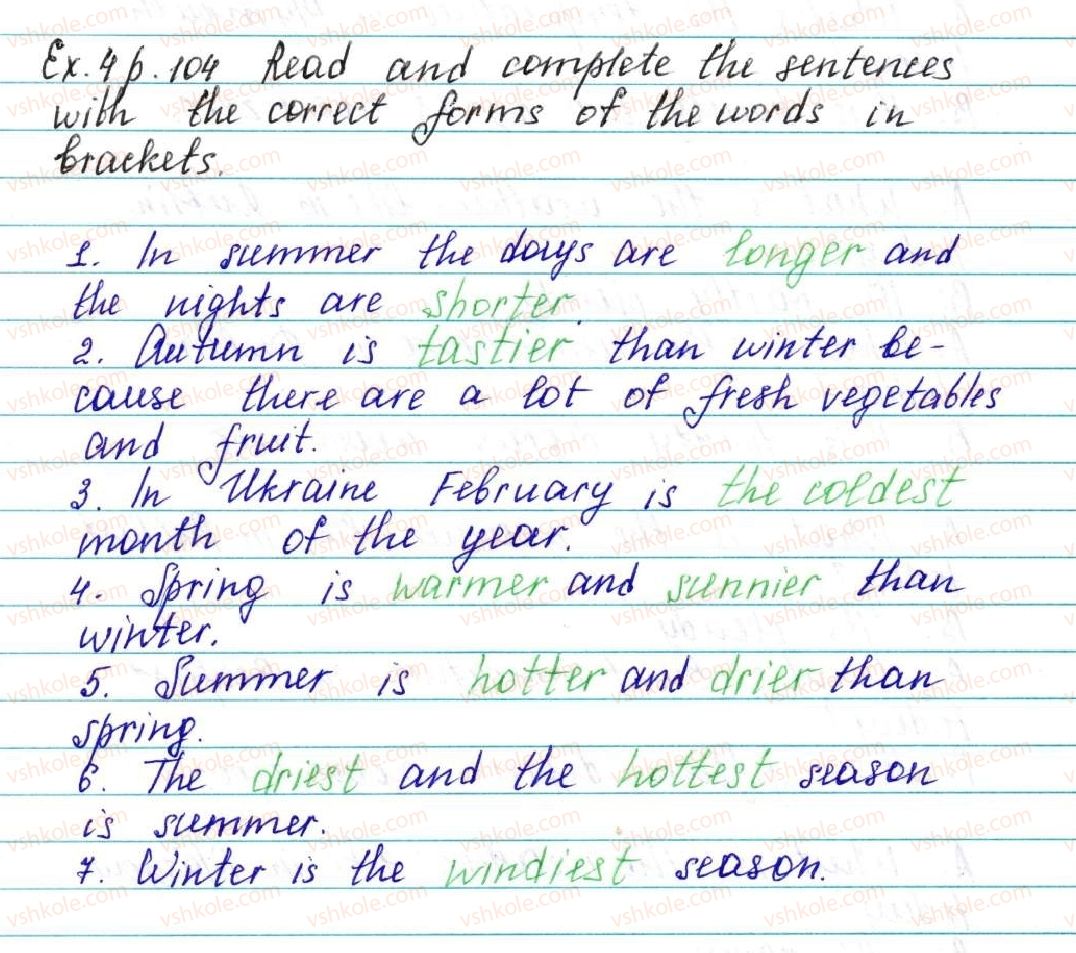 Ex. 4 p. 104 Read and complete the sentences
with the correct forms of the words in
brackets.
1. In summer the days are longer and
the nights are shorter.
2. Autumn is tastier than winter be-
cause there are a lot of fresh vegetables
and fruit.
3. In Ukraine February is the coldest
month of the year.
4. Spring is warmer and sunnier than
winter.
5. Summer is hotter and drier than
spring.
6. The driest and the hottest season
is summer.
7. Winter is the windiest season.
vshkole.com